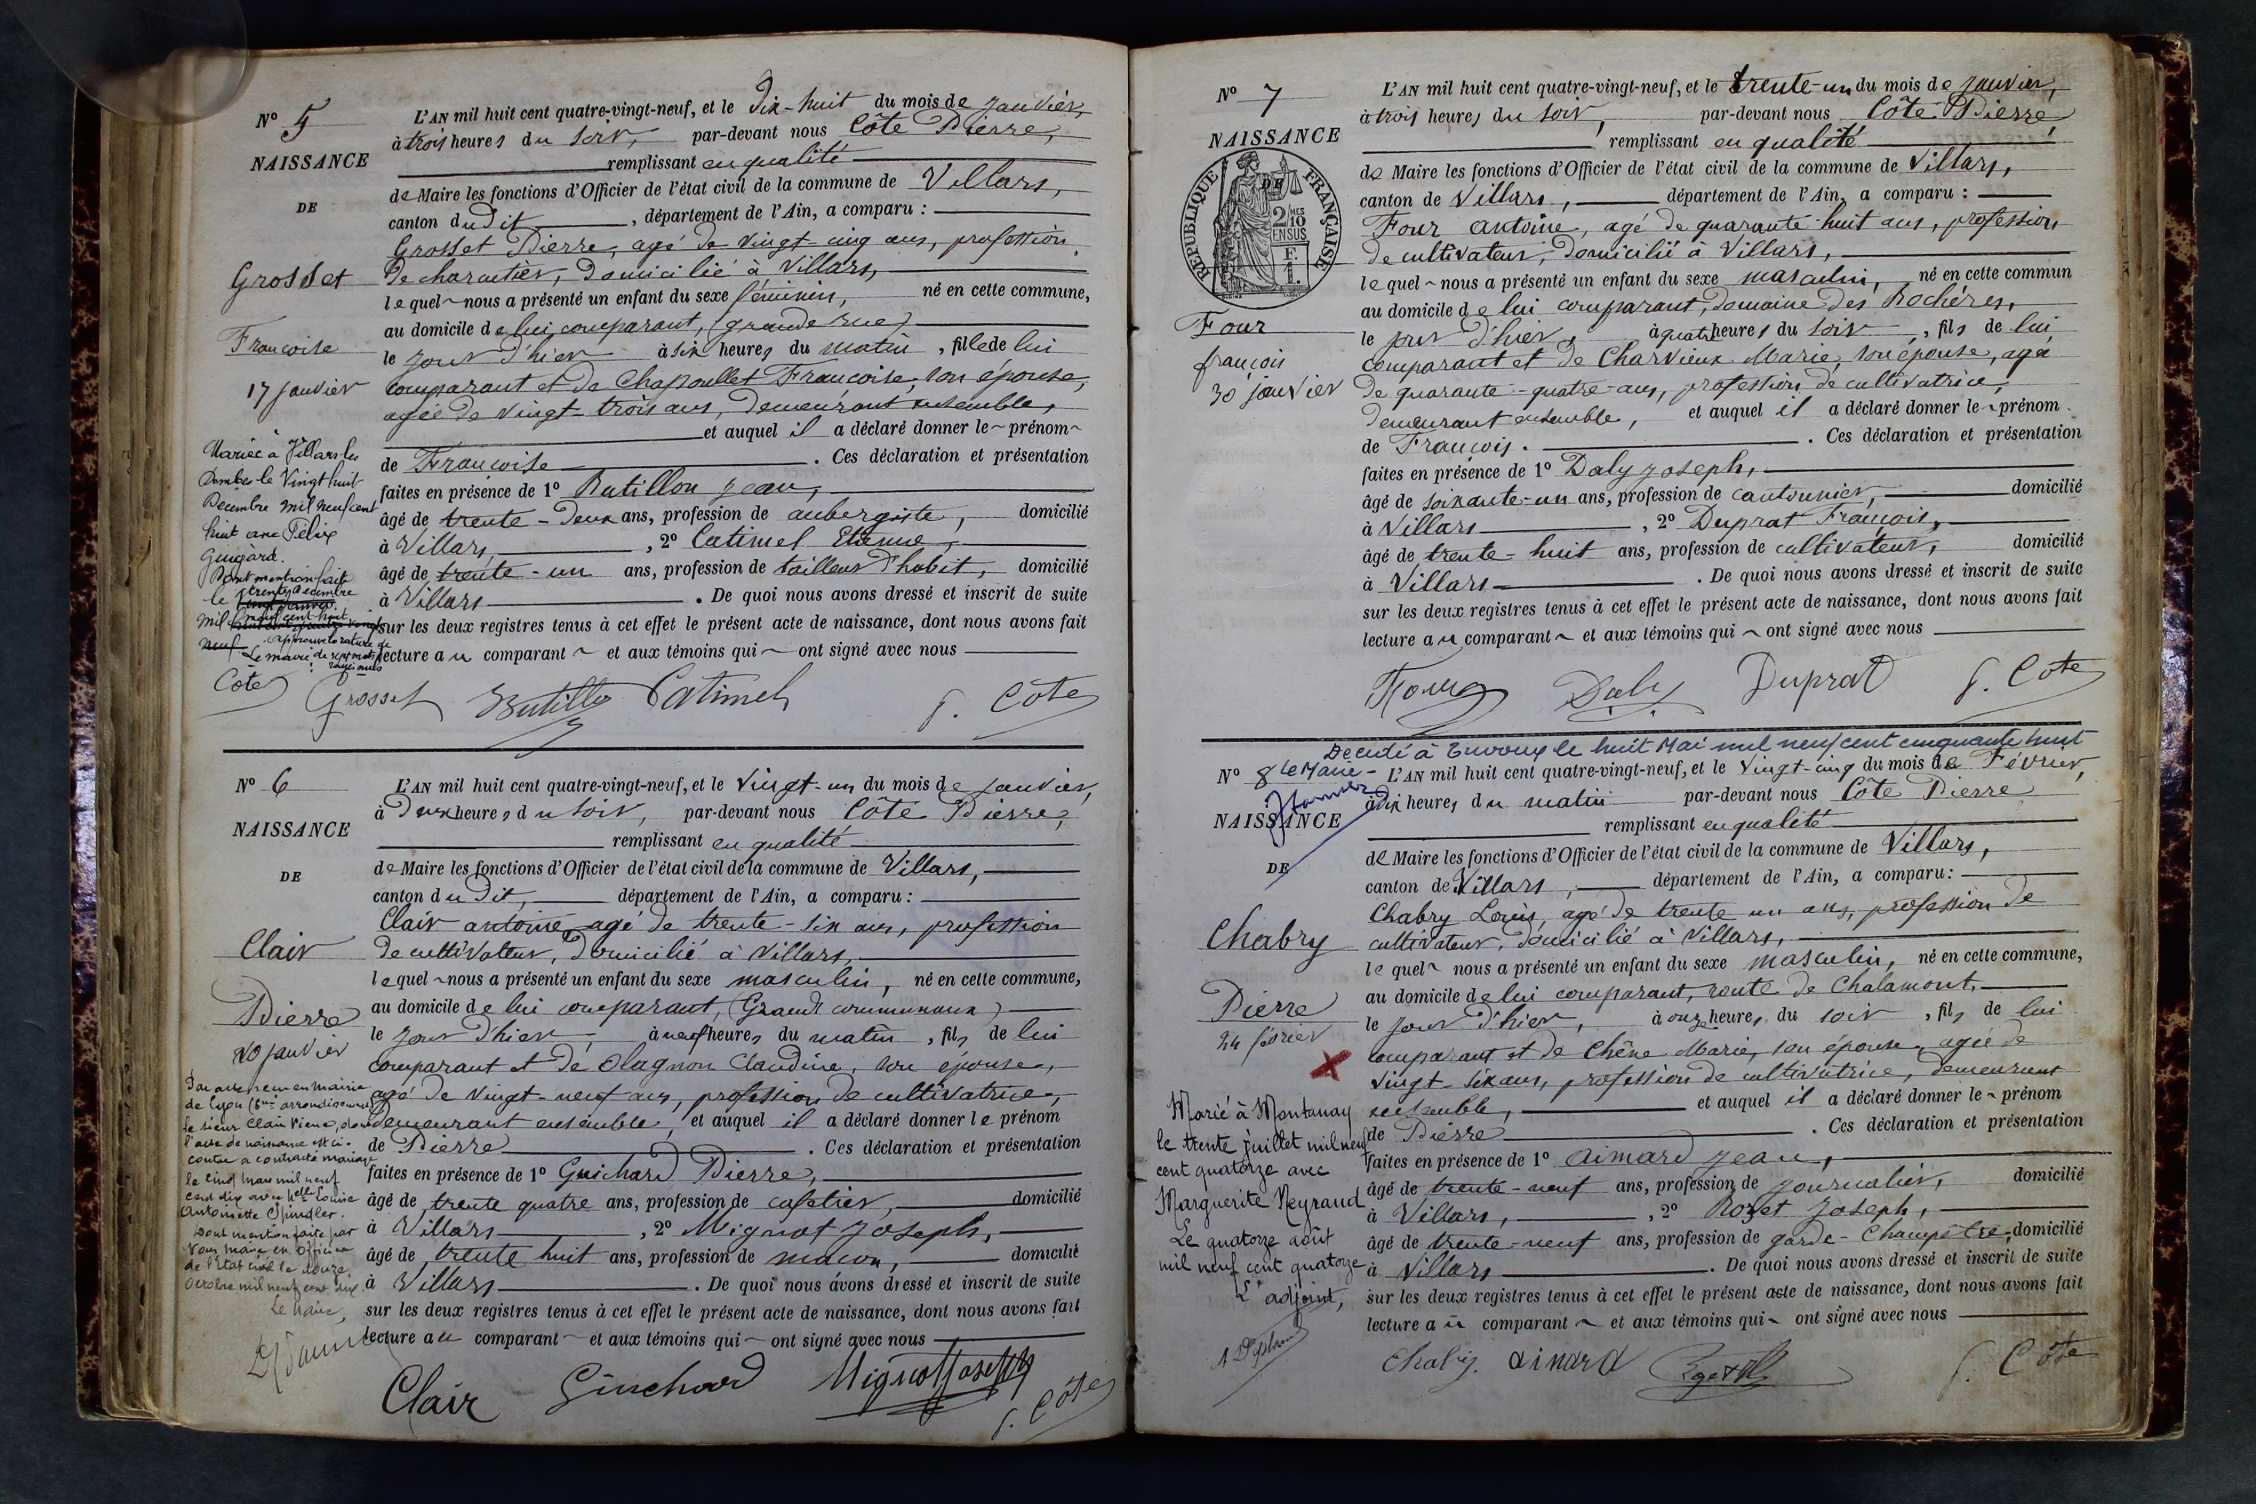 N° 5
NAISSANCE
DE
Grosset
Françoise
17 janvier
Mariée à Villars les
Dombes le Vingt huit
Décembre mil neuf cent
huit avec Félix
Guigard.
Dont mention faite
le trente décembre
mil neuf cent huit
neuf approuvé la rature de
Le maire de sept mots
rayés nuls
Côte
L'AN mil huit cent quatre-vingt-neuf, et le Dix-huit du mois de janvier,
à trois heures du soir, par-devant nous Côte Pierre,
remplissant en qualité
de Maire les fonctions d'Officier de l'état civil de la commune de Villars,
canton du Dit, département de l'Ain, a comparu :
Grosset Pierre, agé de vingt-cinq ans, profession
de charcutier, Domicilié à Villars,
lequel nous a présenté un enfant du sexe féminin, né en cette commune,
au domicile de lui comparant, (grande rue)
le jour d'hier à six heures du matin, fille de lui
comparant et de Chapoullet Françoise, son épouse,
agée de vingt-trois ans, demeurant ensemble,
et auquel il a déclaré donner le prénom
de Françoise. Ces déclaration et présentation
faites en présence de 1° Butillon jean,
âgé de trente-deux ans, profession de aubergiste, domicilié
à Villars, 2° Catimel Etienne,
âgé de trente-un ans, profession de tailleur d'habit, domicilié
à Villars. De quoi nous avons dressé et inscrit de suite
sur les deux registres tenus à cet effet le présent acte de naissance, dont nous avons fait
lecture au comparant et aux témoins qui ont signé avec nous
Grosset Butillon Catimel P. Côte
N° 6
NAISSANCE
DE
Clair
Pierre
20 janvier
Par acte reçu en mairie
de Lyon (6me arrondissement)
le sieur Clair Pierre, dont
l'acte de naissance est ci-
contre a contracté mariage
le cinq mars mil neuf
cent dix avec Melle Louise
Antoinette Spindler.
Dont mention faite par
Nous maire en Officier
de l'Etat civil le douze
Octobre mil neuf cent dix
Le Maire,
L'AN mil huit cent quatre-vingt-neuf, et le vingt-un du mois de janvier,
à Deux heures du soir, par-devant nous Côte Pierre,
remplissant en qualité
de Maire les fonctions d'Officier de l'état civil de la commune de Villars,
canton du Dit, département de l'Ain, a comparu :
Clair antoine, agé de trente-six ans, profession
de cultivateur, Domicilié à Villars,
lequel nous a présenté un enfant du sexe masculin, né en cette commune,
au domicile de lui comparant, (Grands communaux)
le jour d'hier, à neuf heures du matin, fils de lui
comparant et de Olagnon Claudine, son épouse,
agé de vingt-neuf ans, profession de cultivatrice,
demeurant ensemble, et auquel il a déclaré donner le prénom
de Pierre. Ces déclaration et présentation
faites en présence de 1° Guichard Pierre,
âgé de trente quatre ans, profession de cafetier, domicilié
à Villars, 2° Mignot Joseph,
âgé de trente huit ans, profession de maçon, domicilié
à Villars. De quoi nous avons dressé et inscrit de suite
sur les deux registres tenus à cet effet le présent acte de naissance, dont nous avons fait
lecture au comparant et aux témoins qui ont signé avec nous
Clair Guichard Mignot Joseph P. Côte
N° 7
NAISSANCE
DE
REPUBLIQUE FRANÇAISE
2/10 MES EN SUS
F. 1.
Four
françois
30 janvier
L'AN mil huit cent quatre-vingt-neuf, et le trente-un du mois de janvier,
à trois heures du soir, par-devant nous Côte Pierre,
remplissant en qualité
de Maire les fonctions d'Officier de l'état civil de la commune de Villars,
canton de Villars, département de l'Ain, a comparu :
Four antoine, agé de quarante-huit ans, profession
de cultivateur, Domicilié à Villars,
lequel nous a présenté un enfant du sexe masculin, né en cette commun
au domicile de lui comparant, domaine des Rochères,
le jour d'hier, à quatre heures du soir, fils de lui
comparant et de Charvieux Marie, son épouse, agé
de quarante-quatre ans, profession de cultivatrice,
demeurant ensemble, et auquel il a déclaré donner le prénom
de François. Ces déclaration et présentation
faites en présence de 1° Daly joseph,
âgé de soixante-un ans, profession de cantonnier, domicilié
à Villars, 2° Duprat François,
âgé de trente-huit ans, profession de cultivateur, domicilié
à Villars. De quoi nous avons dressé et inscrit de suite
sur les deux registres tenus à cet effet le présent acte de naissance, dont nous avons fait
lecture au comparant et aux témoins qui ont signé avec nous
Four Daly Duprat P. Côte
Décédé à Trévoux le huit Mai mil neuf cent cinquante huit
Le Maire
N° 8
NAISSANCE
DE
Chabry
Pierre
24 février
Marié à Montanay
le trente juillet mil neuf
cent quatorze avec
Marguerite Neyraud
Le quatorze août
mil neuf cent quatorze
L'adjoint,
L'AN mil huit cent quatre-vingt-neuf, et le vingt-cinq du mois de Février,
à dix heures du matin par-devant nous Côte Pierre
remplissant en qualité
de Maire les fonctions d'Officier de l'état civil de la commune de Villars,
canton de Villars, département de l'Ain, a comparu :
Chabry Louis, agé de trente un ans, profession de
cultivateur, domicilié à Villars,
lequel nous a présenté un enfant du sexe masculin, né en cette commune,
au domicile de lui comparant, route de Chalamont,
le jour d'hier, à onze heures du soir, fils de lui
comparant et de Chêne Marie, son épouse, agée de
vingt-six ans, profession de cultivatrice, demeurant
ensemble, et auquel il a déclaré donner le prénom
de Pierre. Ces déclaration et présentation
faites en présence de 1° Aimard jean,
âgé de trente-neuf ans, profession de journalier, domicilié
à Villars, 2° Rozet Joseph,
âgé de trente-neuf ans, profession de garde-Champêtre, domicilié
à Villars. De quoi nous avons dressé et inscrit de suite
sur les deux registres tenus à cet effet le présent acte de naissance, dont nous avons fait
lecture au comparant et aux témoins qui ont signé avec nous
Chabry. Aimard P. Côte